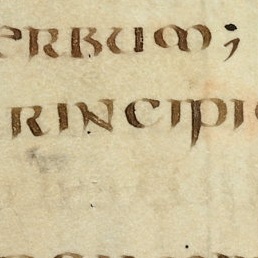 erbum;
rincipi